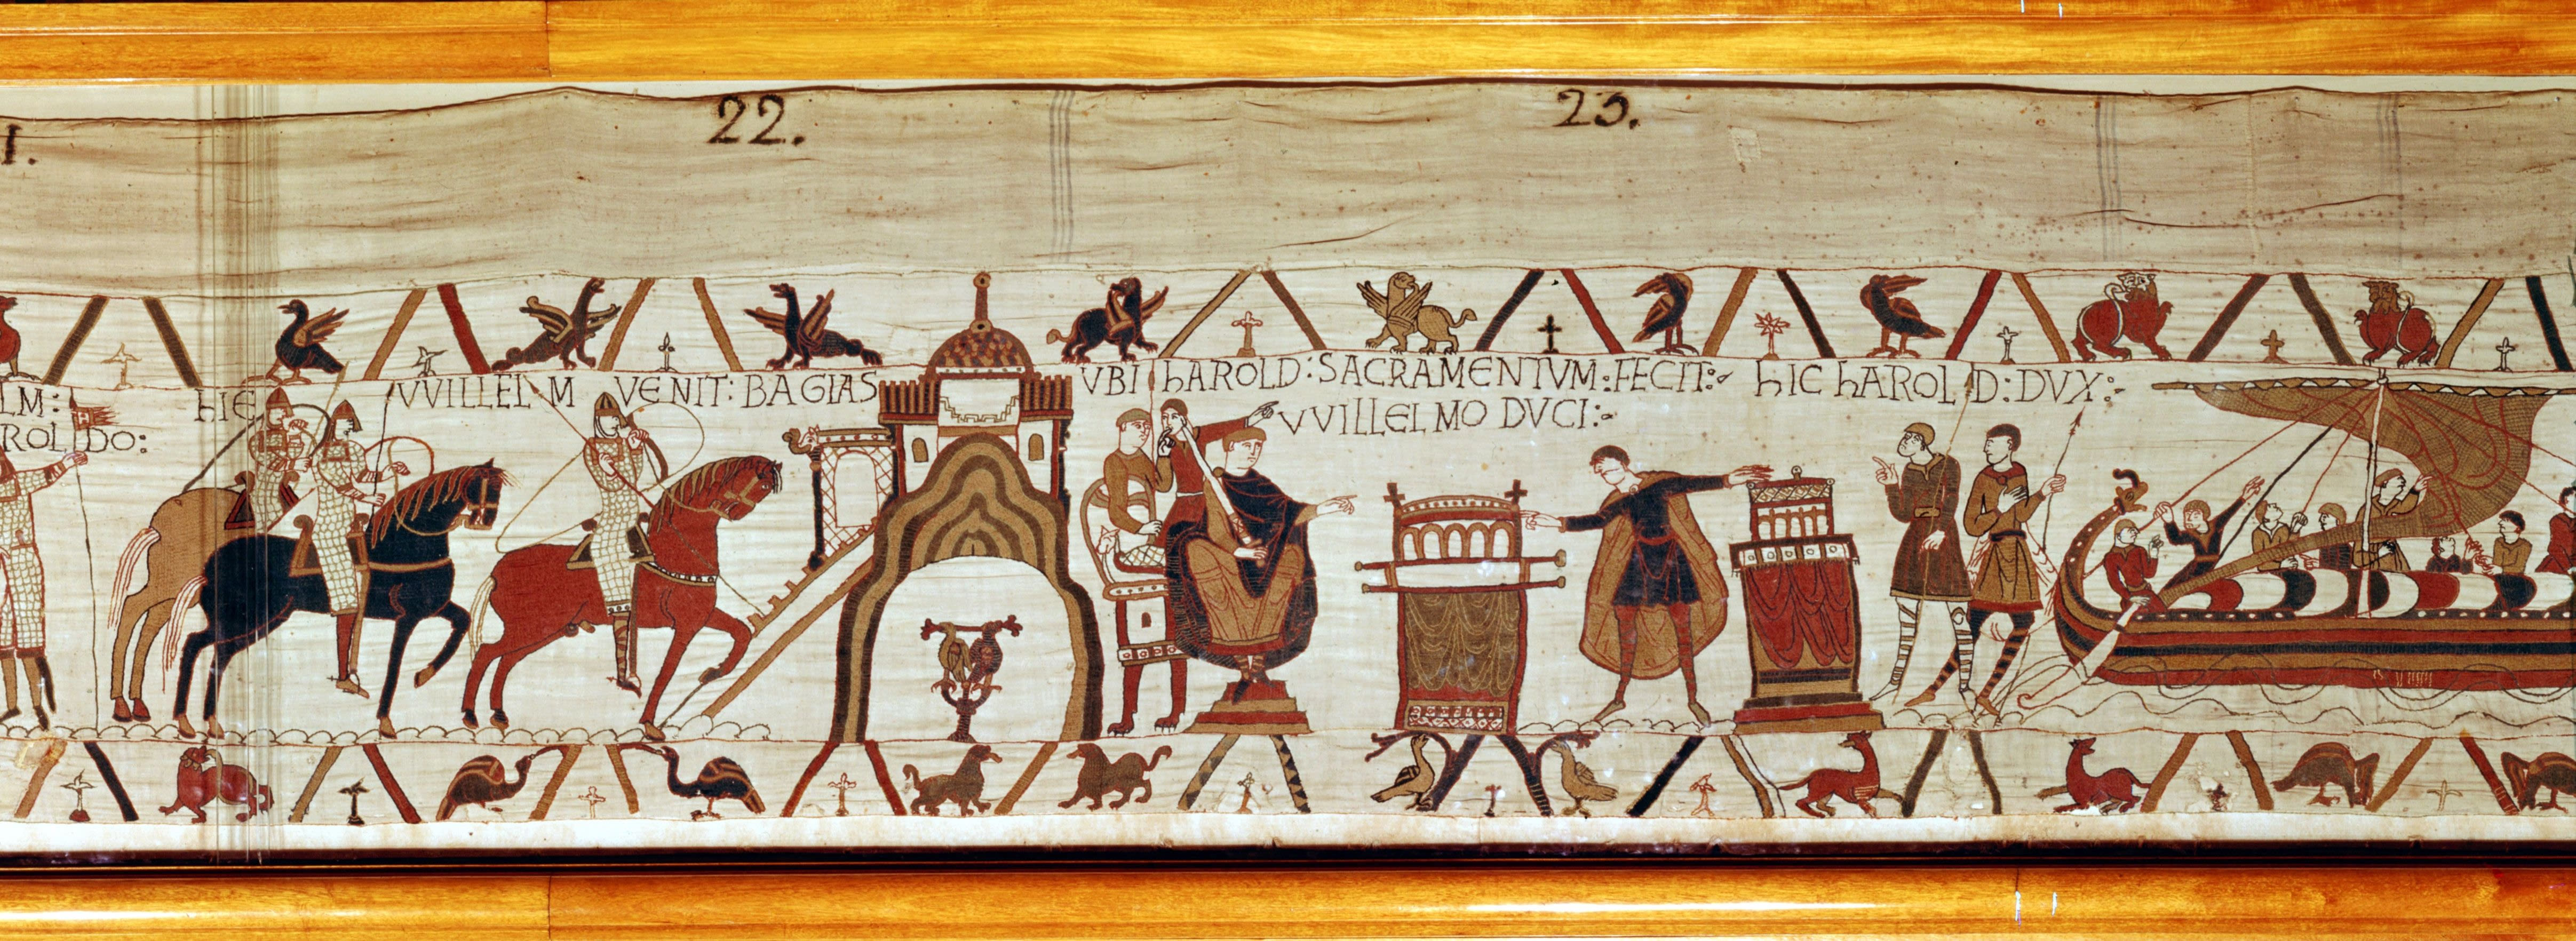 1. 22. 23.
LM: HIE VVILLELM VENIT: BAGIAS VBI hAROLD: SACRAMENTVM: FECIT:
ROLDO: VVILLELMO DVCI:
hIC hAROLD: DVX: